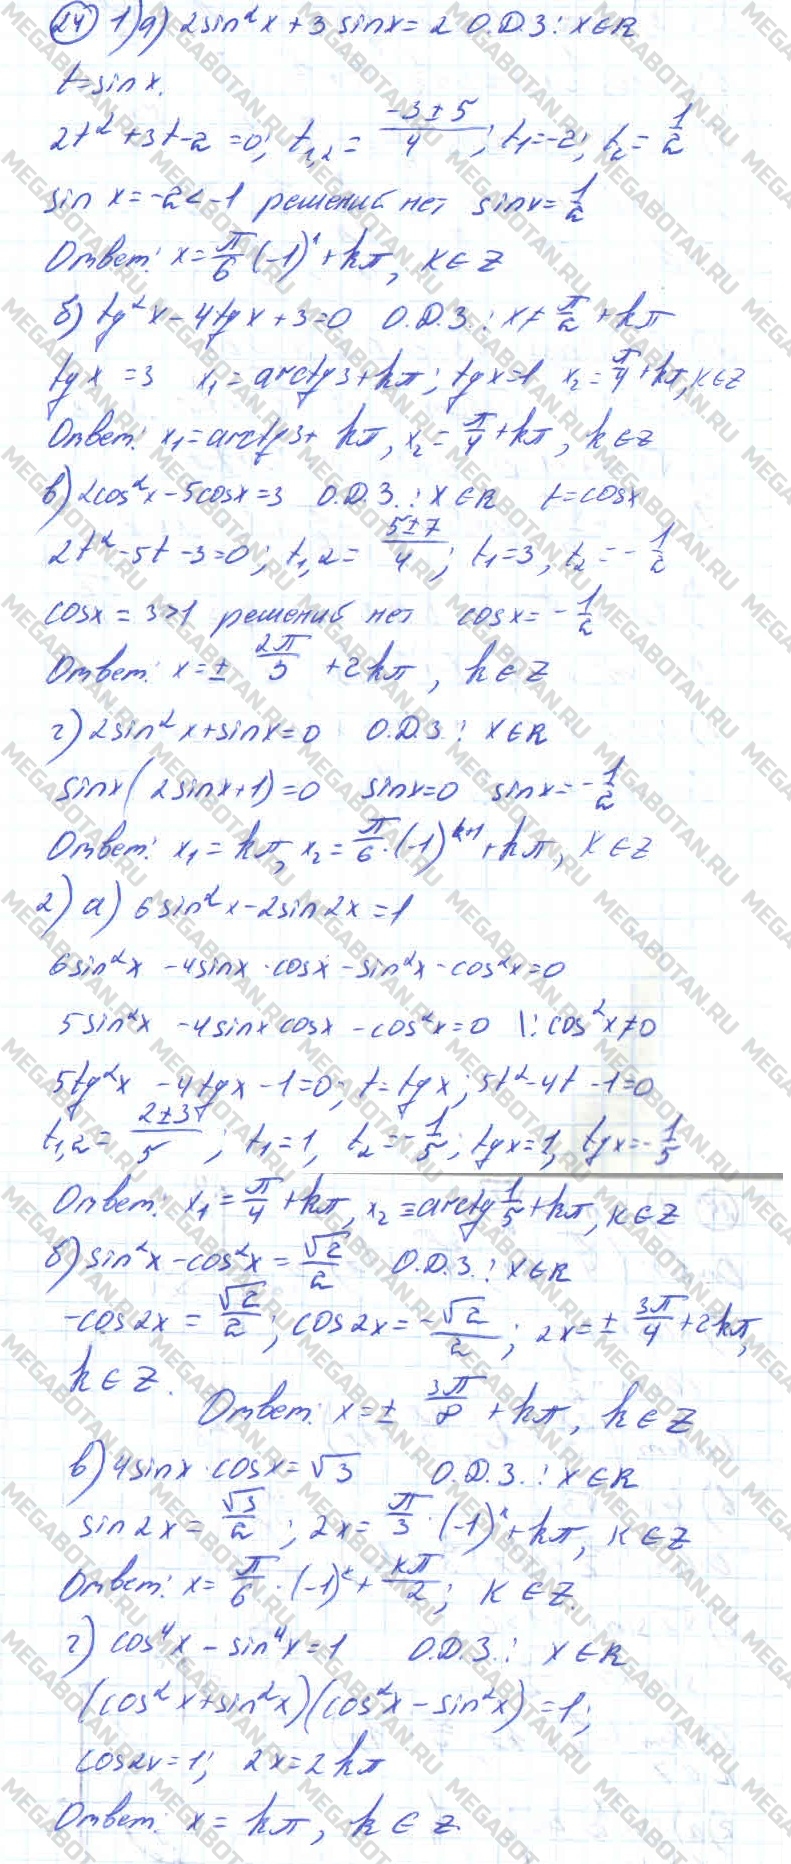 24 1) а) 2sin²x + 3 sinx = 2 О.Д.З.: x∈R
t=sin x.
2t² + 3t - 2 = 0; t₁,₂ = (-3±5)/4; t₁=-2; t₂= 1/2
sin x = -2 < -1 решений нет sinx= 1/2
Ответ: x= π/6 (-1)ᵏ + kπ, k∈Z
б) tg²x - 4tgx + 3 = 0 О.Д.З.: x≠ π/2 + kπ
tgx = 3 x₁ = arctg3 + kπ; tgx=1 x₂= π/4 + kπ, k∈Z
Ответ: x₁=arctg3 + kπ, x₂= π/4 + kπ, k∈Z
в) 2cos²x - 5cosx = 3 О.Д.З.: x∈R t=cosx
2t² - 5t - 3 = 0; t₁,₂ = (5±7)/4; t₁=3, t₂= - 1/2
cosx = 3>1 решений нет cosx= - 1/2
Ответ: x= ± 2π/3 + 2kπ, k∈Z
г) 2sin²x + sinx = 0 О.Д.З.: x∈R
sinx(2sinx+1)=0 sinx=0 sinx= - 1/2
Ответ: x₁=kπ, x₂= π/6 · (-1)ᵏ⁺¹ + kπ, k∈Z
2) а) 6sin²x - 2sin2x = 1
6sin²x - 4sinx · cosx - sin²x - cos²x = 0
5sin²x - 4sinx cosx - cos²x = 0 \: cos²x≠0
5tg²x - 4tgx - 1 = 0; t=tgx; 5t² - 4t - 1 = 0
t₁,₂ = (2±3)/5; t₁=1, t₂= - 1/5; tgx=1, tgx= - 1/5
Ответ: x₁ = π/4 + kπ, x₂ = arctg 1/5 + kπ, k∈Z
б) sin²x - cos²x = √2/2 О.Д.З.: x∈R
-cos2x = √2/2; cos2x = - √2/2; 2x= ± 3π/4 + 2kπ,
k∈Z.
Ответ: x= ± 3π/8 + kπ, k∈Z
в) 4sinx · cosx = √3 О.Д.З.: x∈R
sin2x = √3/2; 2x= π/3 · (-1)ᵏ + kπ, k∈Z
Ответ: x= π/6 · (-1)ᵏ + kπ/2; k∈Z.
г) cos⁴x - sin⁴x = 1 О.Д.З.: x∈R
(cos²x + sin²x)(cos²x - sin²x) = 1;
cos2x=1; 2x=2kπ
Ответ: x=kπ, k∈Z.
MEGABOTAN.RU